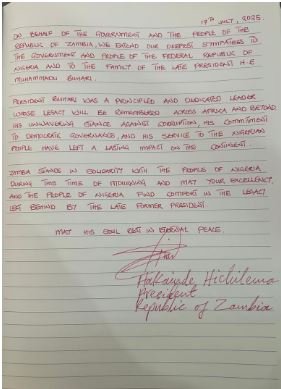 17TH JULY, 2025.
ON BEHALF OF THE GOVERNMENT AND THE PEOPLE OF THE
REPUBLIC OF ZAMBIA, WE EXTEND OUR DEEPEST SYMPATHIES TO
THE GOVERNMENT AND PEOPLE OF THE FEDERAL REPUBLIC OF
NIGERIA AND TO THE FAMILY OF THE LATE PRESIDENT H.E
MUHAMMADU BUHARI.
PRESIDENT BUHARI WAS A PRINCIPLED AND DEDICATED LEADER
WHOSE LEGACY WILL BE REMEMBERED ACROSS AFRICA AND BEYOND
HIS UNWAVERING STANCE AGAINST CORRUPTION, HIS COMMITMENT
TO DEMOCRATIC GOVERNANCE AND HIS SERVICE TO THE NIGERIAN
PEOPLE HAVE LEFT A LASTING IMPACT ON THE CONTINENT.
ZAMBIA STANDS IN SOLIDARITY WITH THE PEOPLE OF NIGERIA
DURING THIS TIME OF MOURNING AND MAY YOUR EXCELLENCY,
AND THE PEOPLE OF NIGERIA FIND COMFORT IN THE LEGACY
LEFT BEHIND BY THE LATE FORMER PRESIDENT.
MAY HIS SOUL REST IN ETERNAL PEACE.
Hakainde Hichilema
President
Republic of Zambia